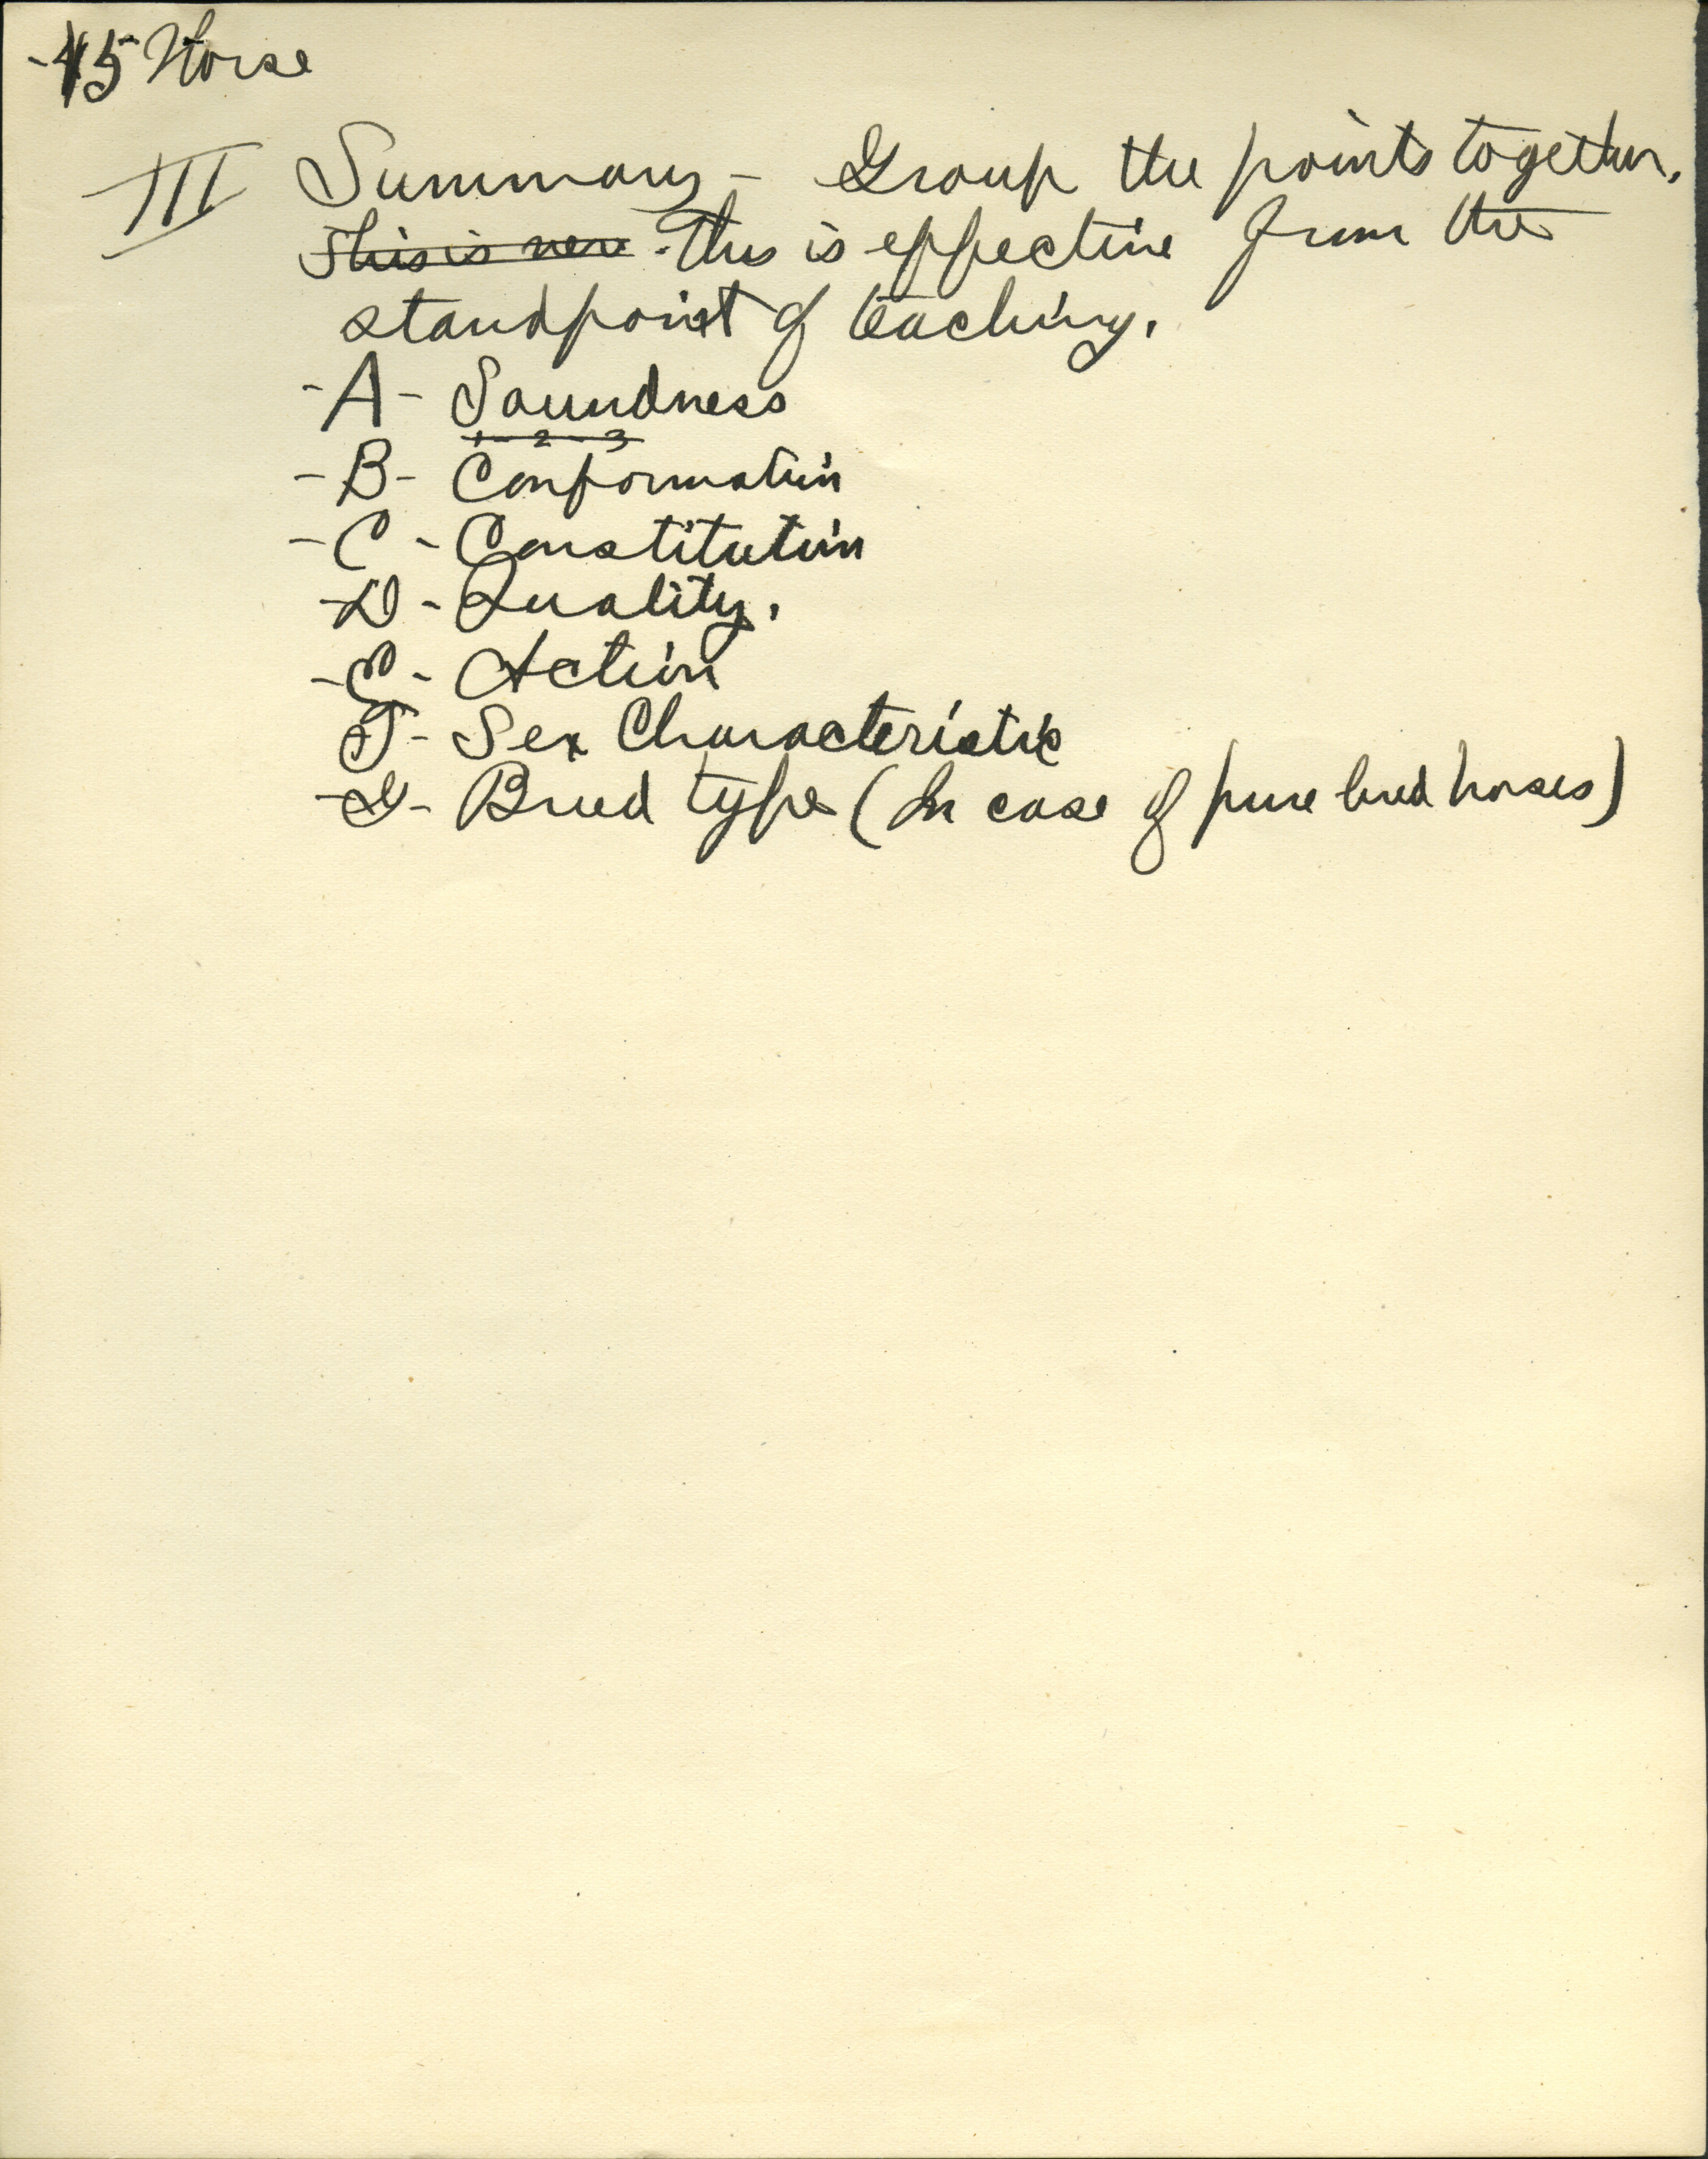 -45 Horse
III Summary - Group the points together.
This is very. This is effective from the
standpoint of teaching.
-A- Soundness
1-2-3
-B- Conformation
-C- Constitution
-D- Quality.
-E- Action
F- Sex Characteristic
-G- Breed type (In case of pure bred horses)